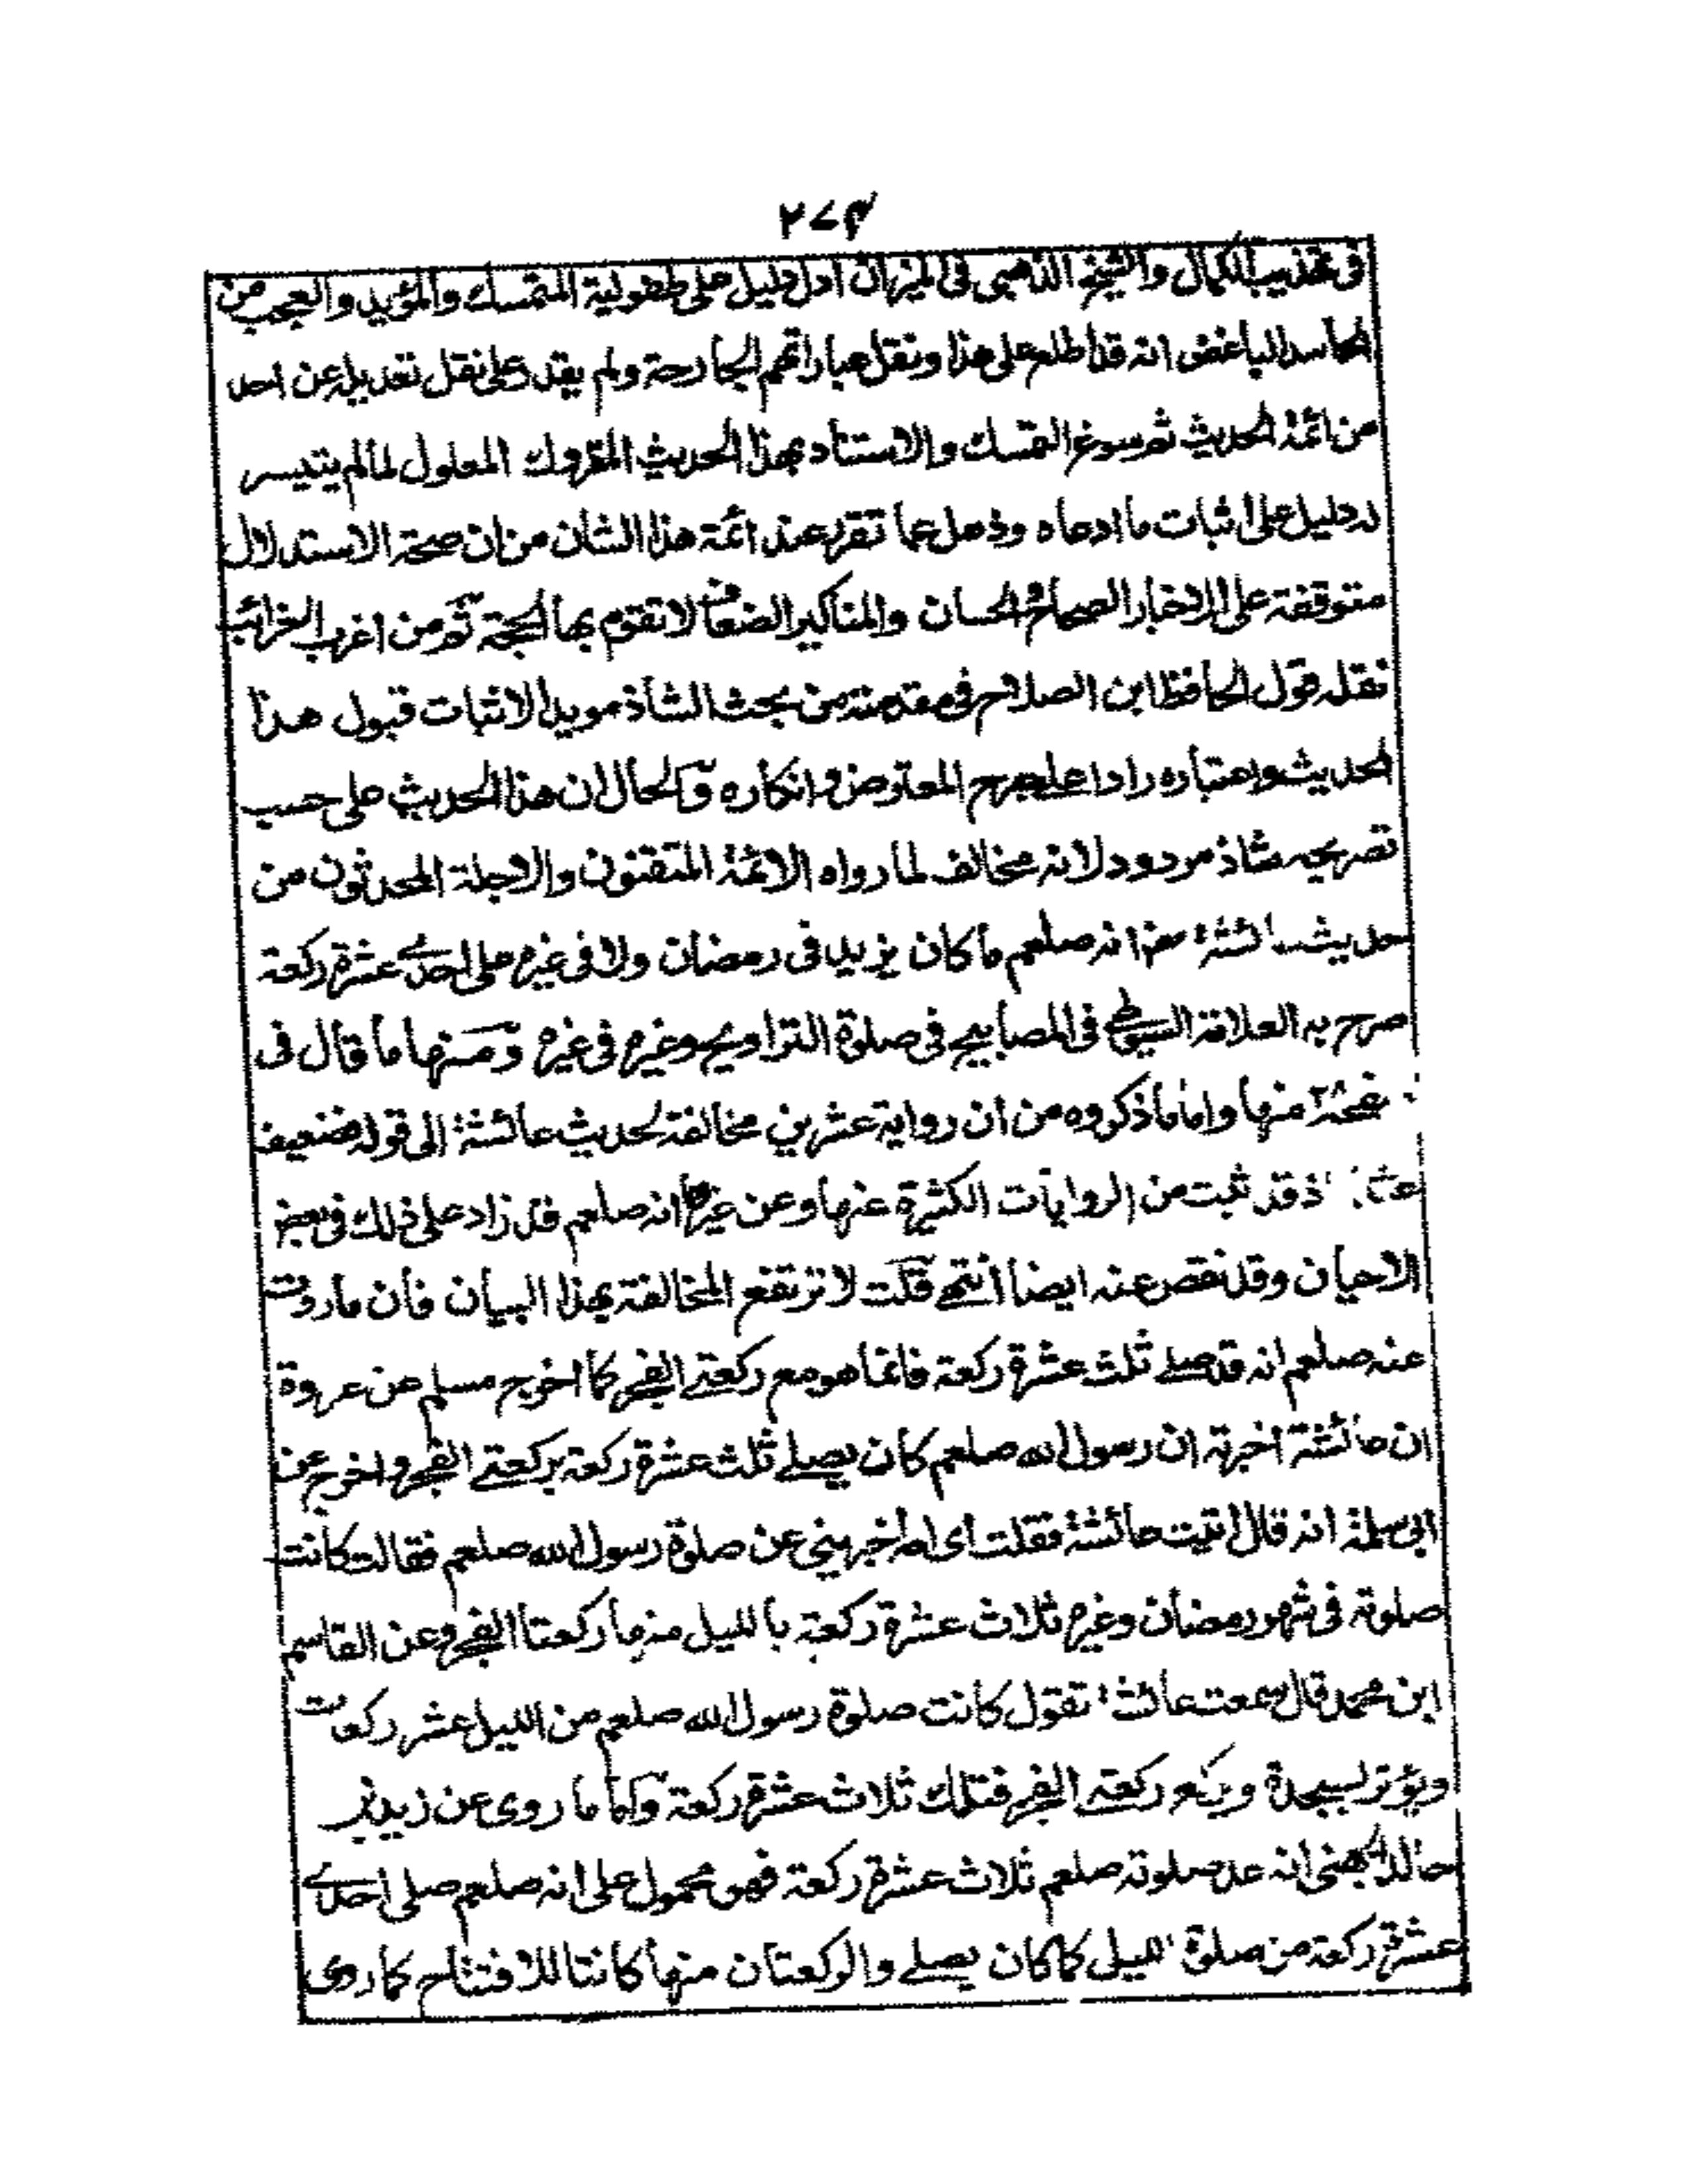 ٢٧٤
فى تهذيب الكمال والشيخ الذهبى فى الميزان ادل دليل على طفولية المتمسك والمؤيد والعجب من
الحاسد الباغض انه قد اطلع على هذا ونقل عباراتهم الجارحة ولم يقدر على نقل تعديله عن احد
من ائمة الحديث ثم سوغ التمسك والاستناد بهذا الحديث المتروك المعلول لما لم يتيسر
له دليل على اثبات ما ادعاه وذهل عما تقرر عند ائمة هذا الشان من ان صحة الاستدلال
متوقفة على الاخبار الصحاح والحسان والمناكير الضعاف لا تقوم بها الحجة ثم من اغرب الغرائب
نقله قول الحافظ ابن الصلاح فى مقدمته من بحث الشاذ مويدا لاثبات قبول هذا
الحديث واعتباره رادا على جرح المعترض وانكاره والحال ان هذا الحديث على حسب
تصريحه شاذ مردود لانه مخالف لما رواه الائمة المتقنون والاجلة المحدثون من
حديث عائشة رض انه صلعم ما كان يزيد فى رمضان ولا فى غيره على احدى عشرة ركعة
صرح به العلامة السيوطى فى المصابيح فى صلوة التراويح وغيره فى غيره ومنها ما قال فى
صفحة ٢ منها واما ما ذكروه من ان رواية عشرين مخالفة لحديث عائشة الى قوله فضعيف
اذ قد ثبت من الروايات الكثيرة عنها وعن غيرها انه صلعم قد زاد على ذلك فى بعض
الاحيان وقد نقص عنه ايضا انتهى قلت لا ترتفع المخالفة بهذا البيان فان ما روت
عنه صلعم انه قد صلى ثلث عشرة ركعة فانما هو مع ركعتى الفجر كما اخرج مسلم عن عروة
ان عائشة اخبرته ان رسول الله صلعم كان يصلى ثلث عشرة ركعة بركعتى الفجر واخرج عن
ابى سلمة انه قال اتيت عائشة فقلت اى امه اخبرينى عن صلوة رسول الله صلعم فقالت كانت
صلوته فى شهر رمضان وغيره ثلاث عشرة ركعة بالليل منها ركعتا الفجر وعن القاسم
ابن محمد قال سمعت عائشة تقول كانت صلوة رسول الله صلعم من الليل عشر ركعات
ويوتر بسجدة ويركع ركعتى الفجر فتلك ثلاث عشرة ركعة واما ما روى عن زيد بن
خالد الجهنى انه عد صلوته صلعم ثلاث عشرة ركعة فهو محمول على انه صلعم صلى احدى
عشرة ركعة من صلوة الليل كما كان يصلى والركعتان منها كانتا للافتتاح كما روى